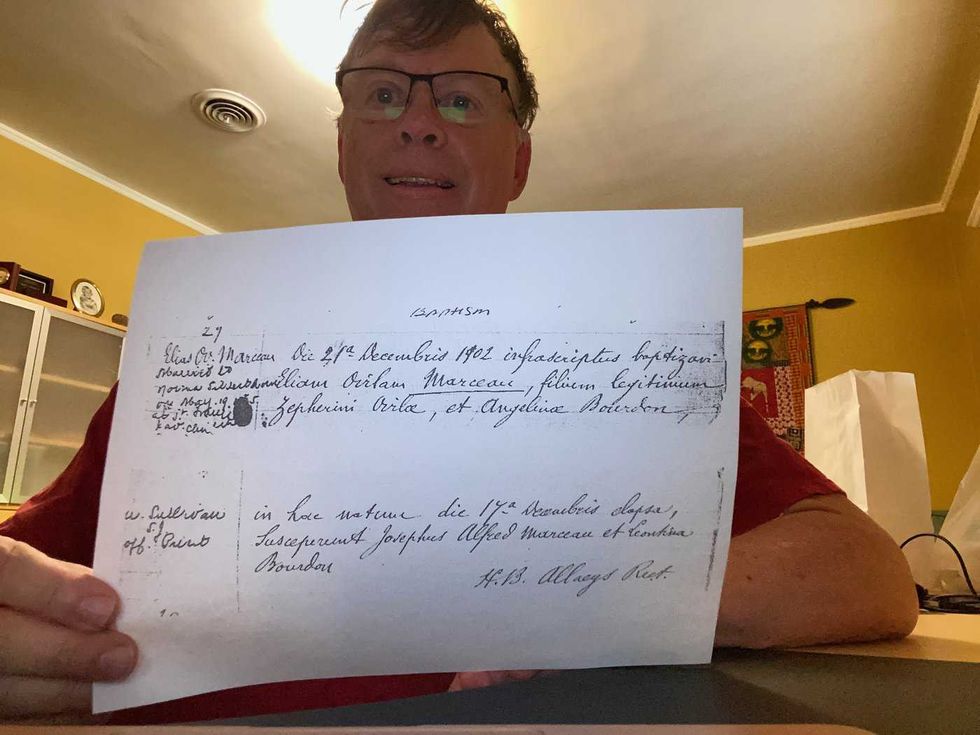 BAPTISM
29
Elias Ov. Marceau
Married to
Norma
on Nov. 19
at St.
Die 21a Decembris 1902 infrascriptus baptizavi
Eliam Ovilam Marceau, filium legitimum
Zepherini Ovilæ, et Angelinæ Bourdon
W. Sullivan
S.J.
off. Print
in hac natum die 17a Decembris elapse,
Susceperunt Josephus Alfred Marceau et Leontina
Bourdon
H. B. Allaeys Rect.